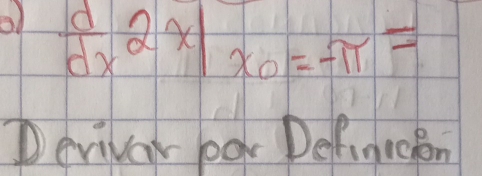 a) d/dx 2x | x₀ = -π =
Derivar por Definición